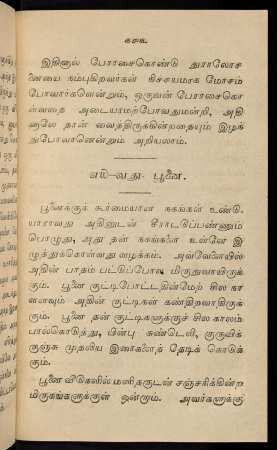 ௧௬௧
இதினால் பேராசைகொண்டு துராலோச
னையை நம்புகிறவர்கள் நிச்சயமாக மோசம்
போவார்களென்றும், ஒருவன் பேராசைகொ
ள்வதை அடையாமற்போவதுமன்றி, அதி
னாலே தான் வைத்திருக்கின்றதையும் இழந்
துபோவானென்றும் அறியலாம்.
வது பூனை.
பூனைக்குக் கூர்மையான நகங்கள் உண்டு.
யாராவது அதினுடன் சீராட்டுப்பண்ணும்
பொழுது, அது தன் நகங்களை உள்ளே இ
ழுத்துக்கொள்வது வழக்கம். அவ்வேளையில்
அதின் பாதம் பட்டுப்போல மிருதுவாயிருக்
கும். பூனை குட்டிபோட்டதின்மேற் சில நா
ளளவும் அதின் குட்டிகள் கண்திறவாதிருக்
கும். பூனை தன் குட்டிகளுக்குச் சில காலம்
பால்கொடுத்து, பின்பு சுண்டெலி, குருவிக்
குஞ்சு முதலிய இரைகளைத் தேடிக் கொடுக்
கும்.
பூனை வீடுகளில் மனிதருடன் சஞ்சரிக்கின்ற
மிருகங்களுக்குள் ஒன்றாம். அவர்களுக்கு